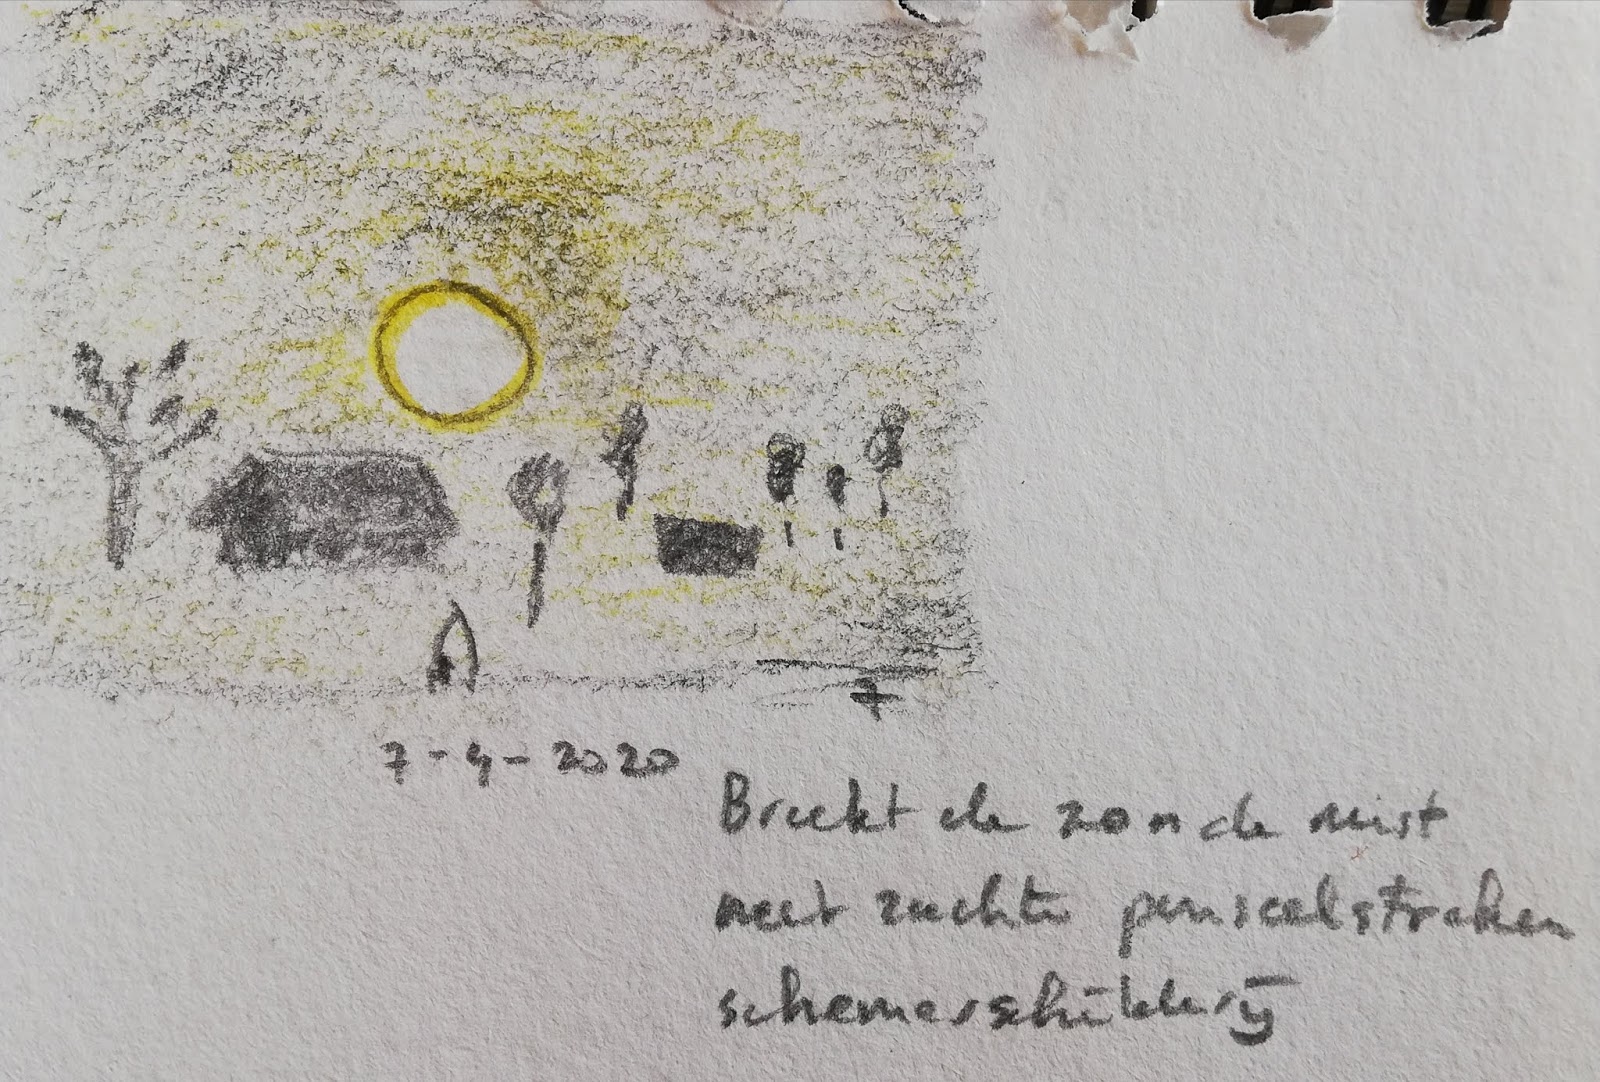 7-4-2020
Breekt de zon de mist
met zachte penseelstreken
schemerschilderij